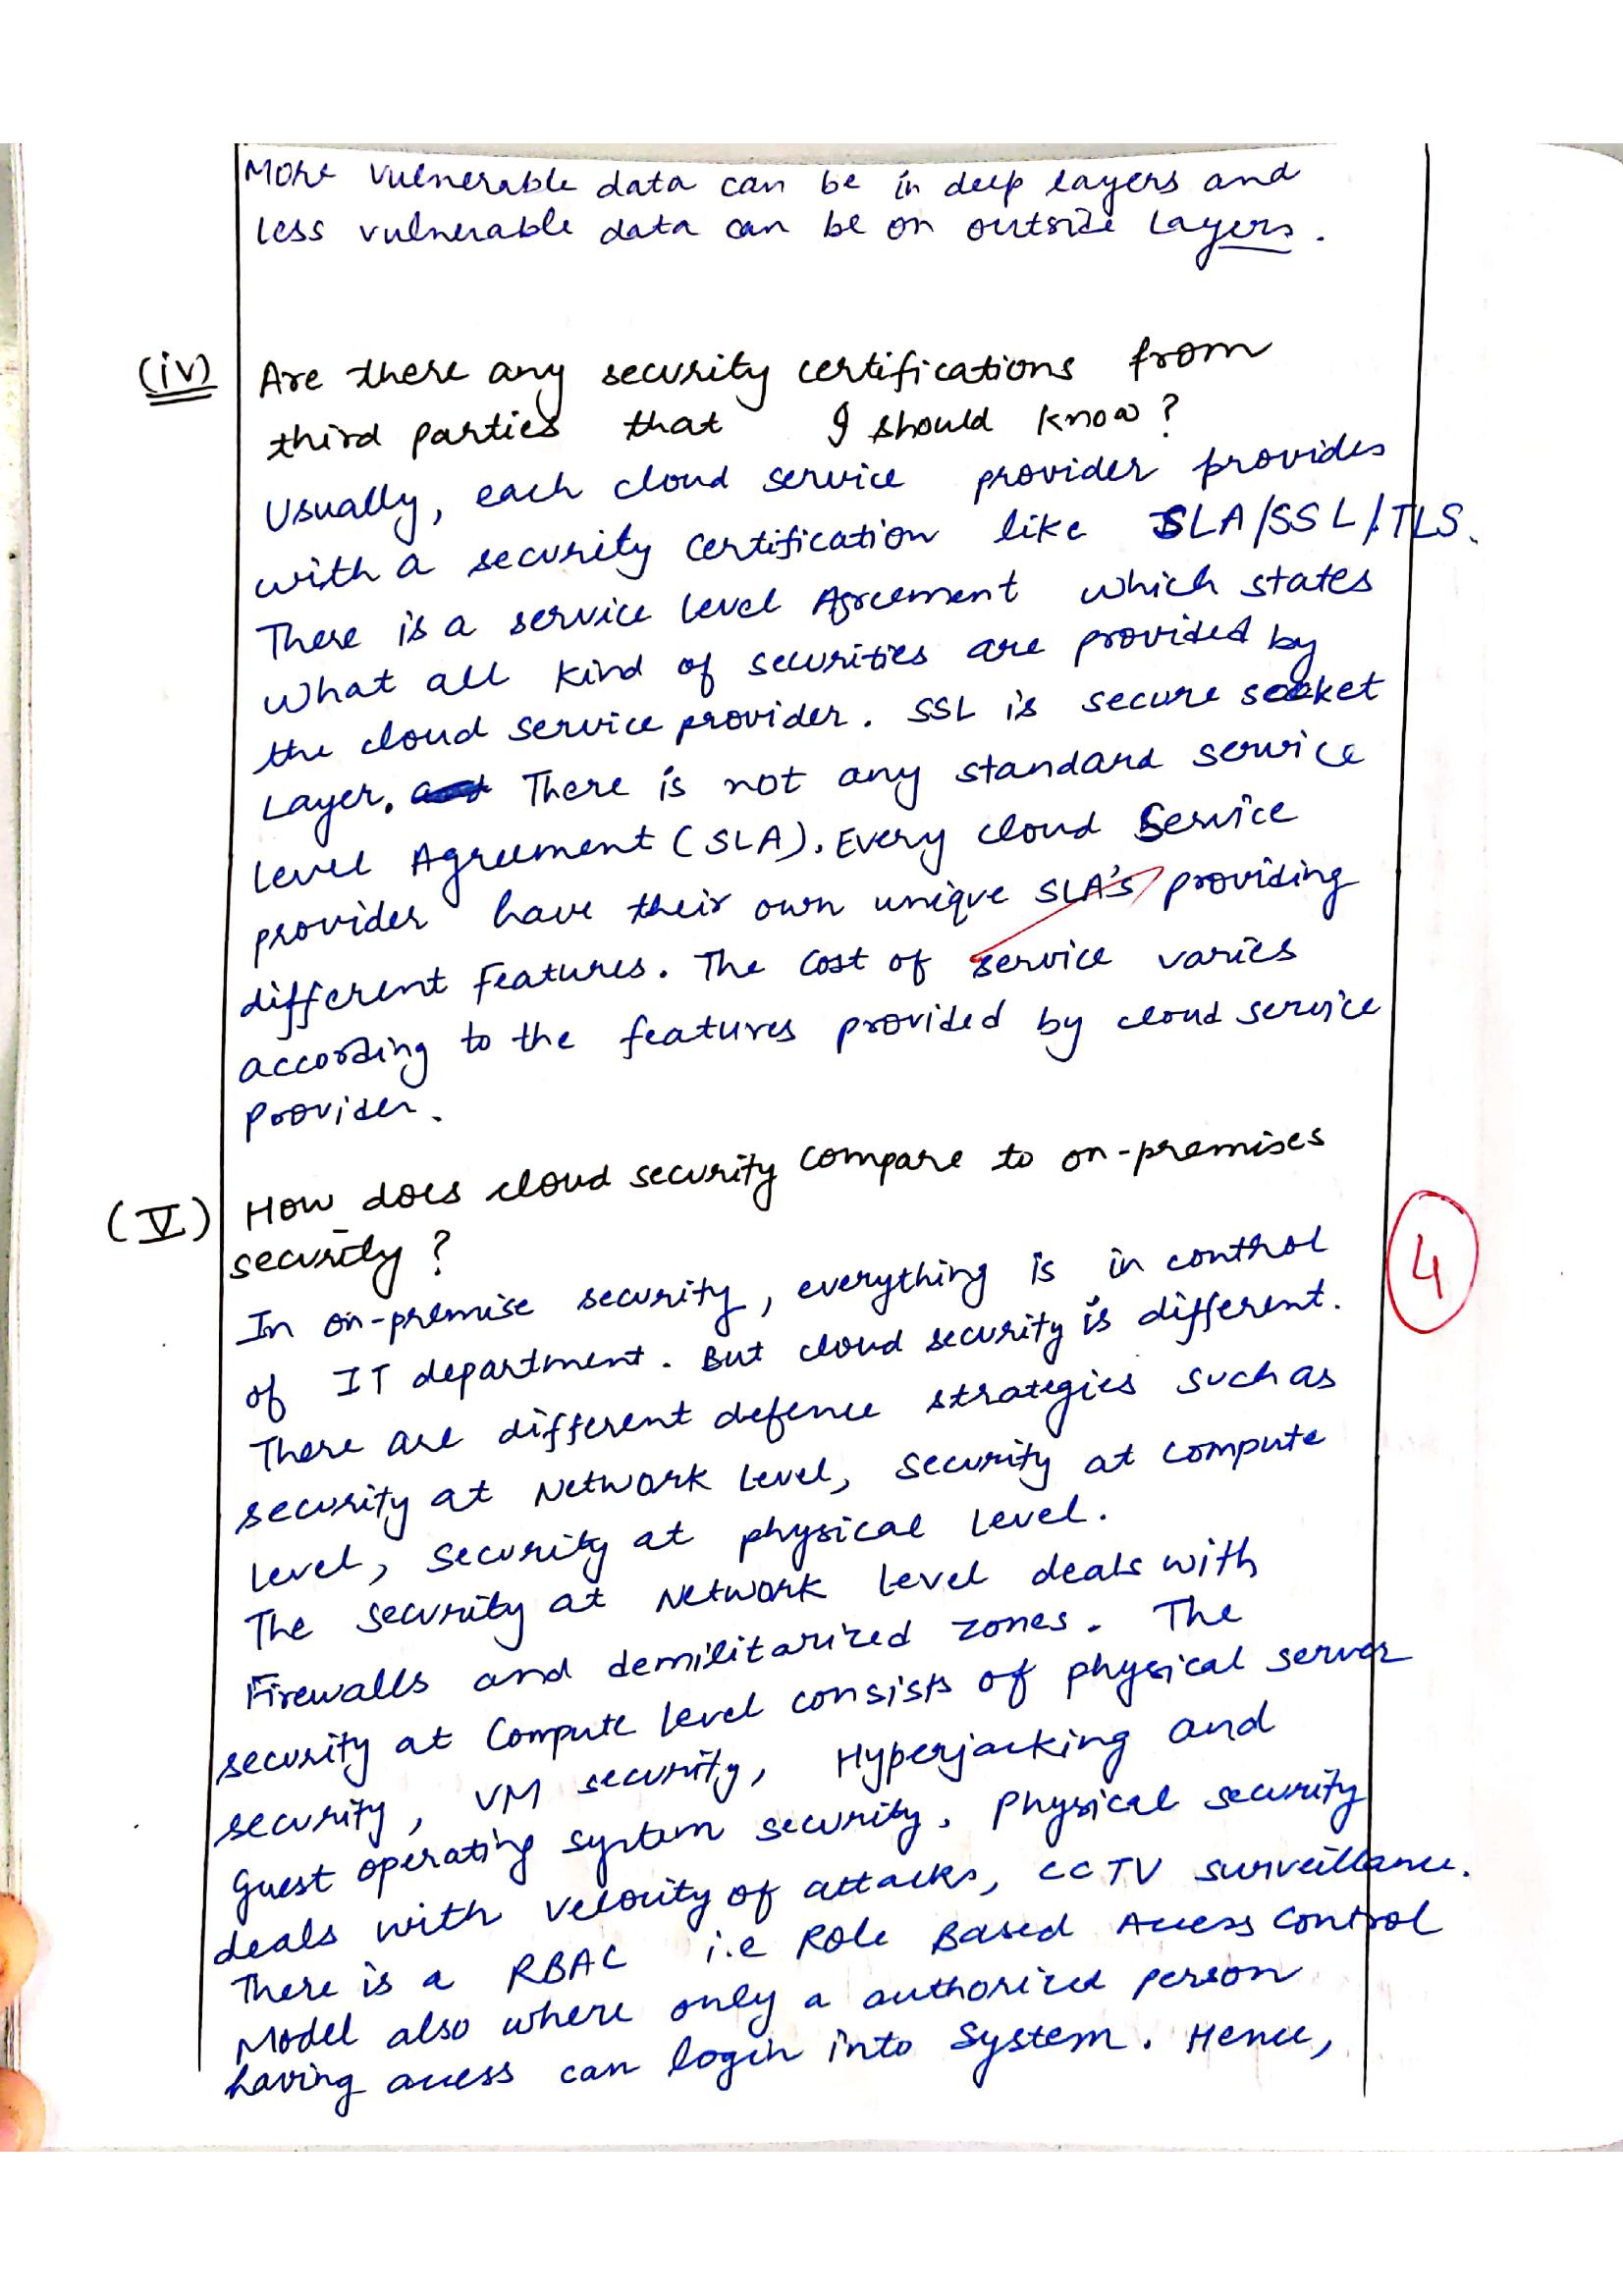 More vulnerable data can be in deep layers and
less vulnerable data can be on outside layers.
(iv) Are there any security certifications from
third parties that I should know?
Usually, each cloud service provider provides
with a security certification like SLA/SSL/TLS.
There is a service level Agreement which states
what all kind of securities are provided by
the cloud service provider. SSL is secure socket
Layer. There is not any standard service
level Agreement (SLA). Every cloud service
provider have their own unique SLA's providing
different features. The cost of service varies
according to the features provided by cloud service
provider.
(V) How does cloud security compare to on-premises
security?
4
In on-premise security, everything is in control
of IT department. But cloud security is different.
There are different defence strategies such as
security at Network level, security at compute
level, security at physical level.
The security at Network level deals with
Firewalls and demilitarized zones. The
security at Compute level consists of physical server
security, VM security, Hyperjacking and
guest operating system security. Physical security
deals with velocity of attacks, CCTV surveillance.
There is a RBAC i.e Role Based Access Control
Model also where only a authorized person
having access can login into system. Hence,